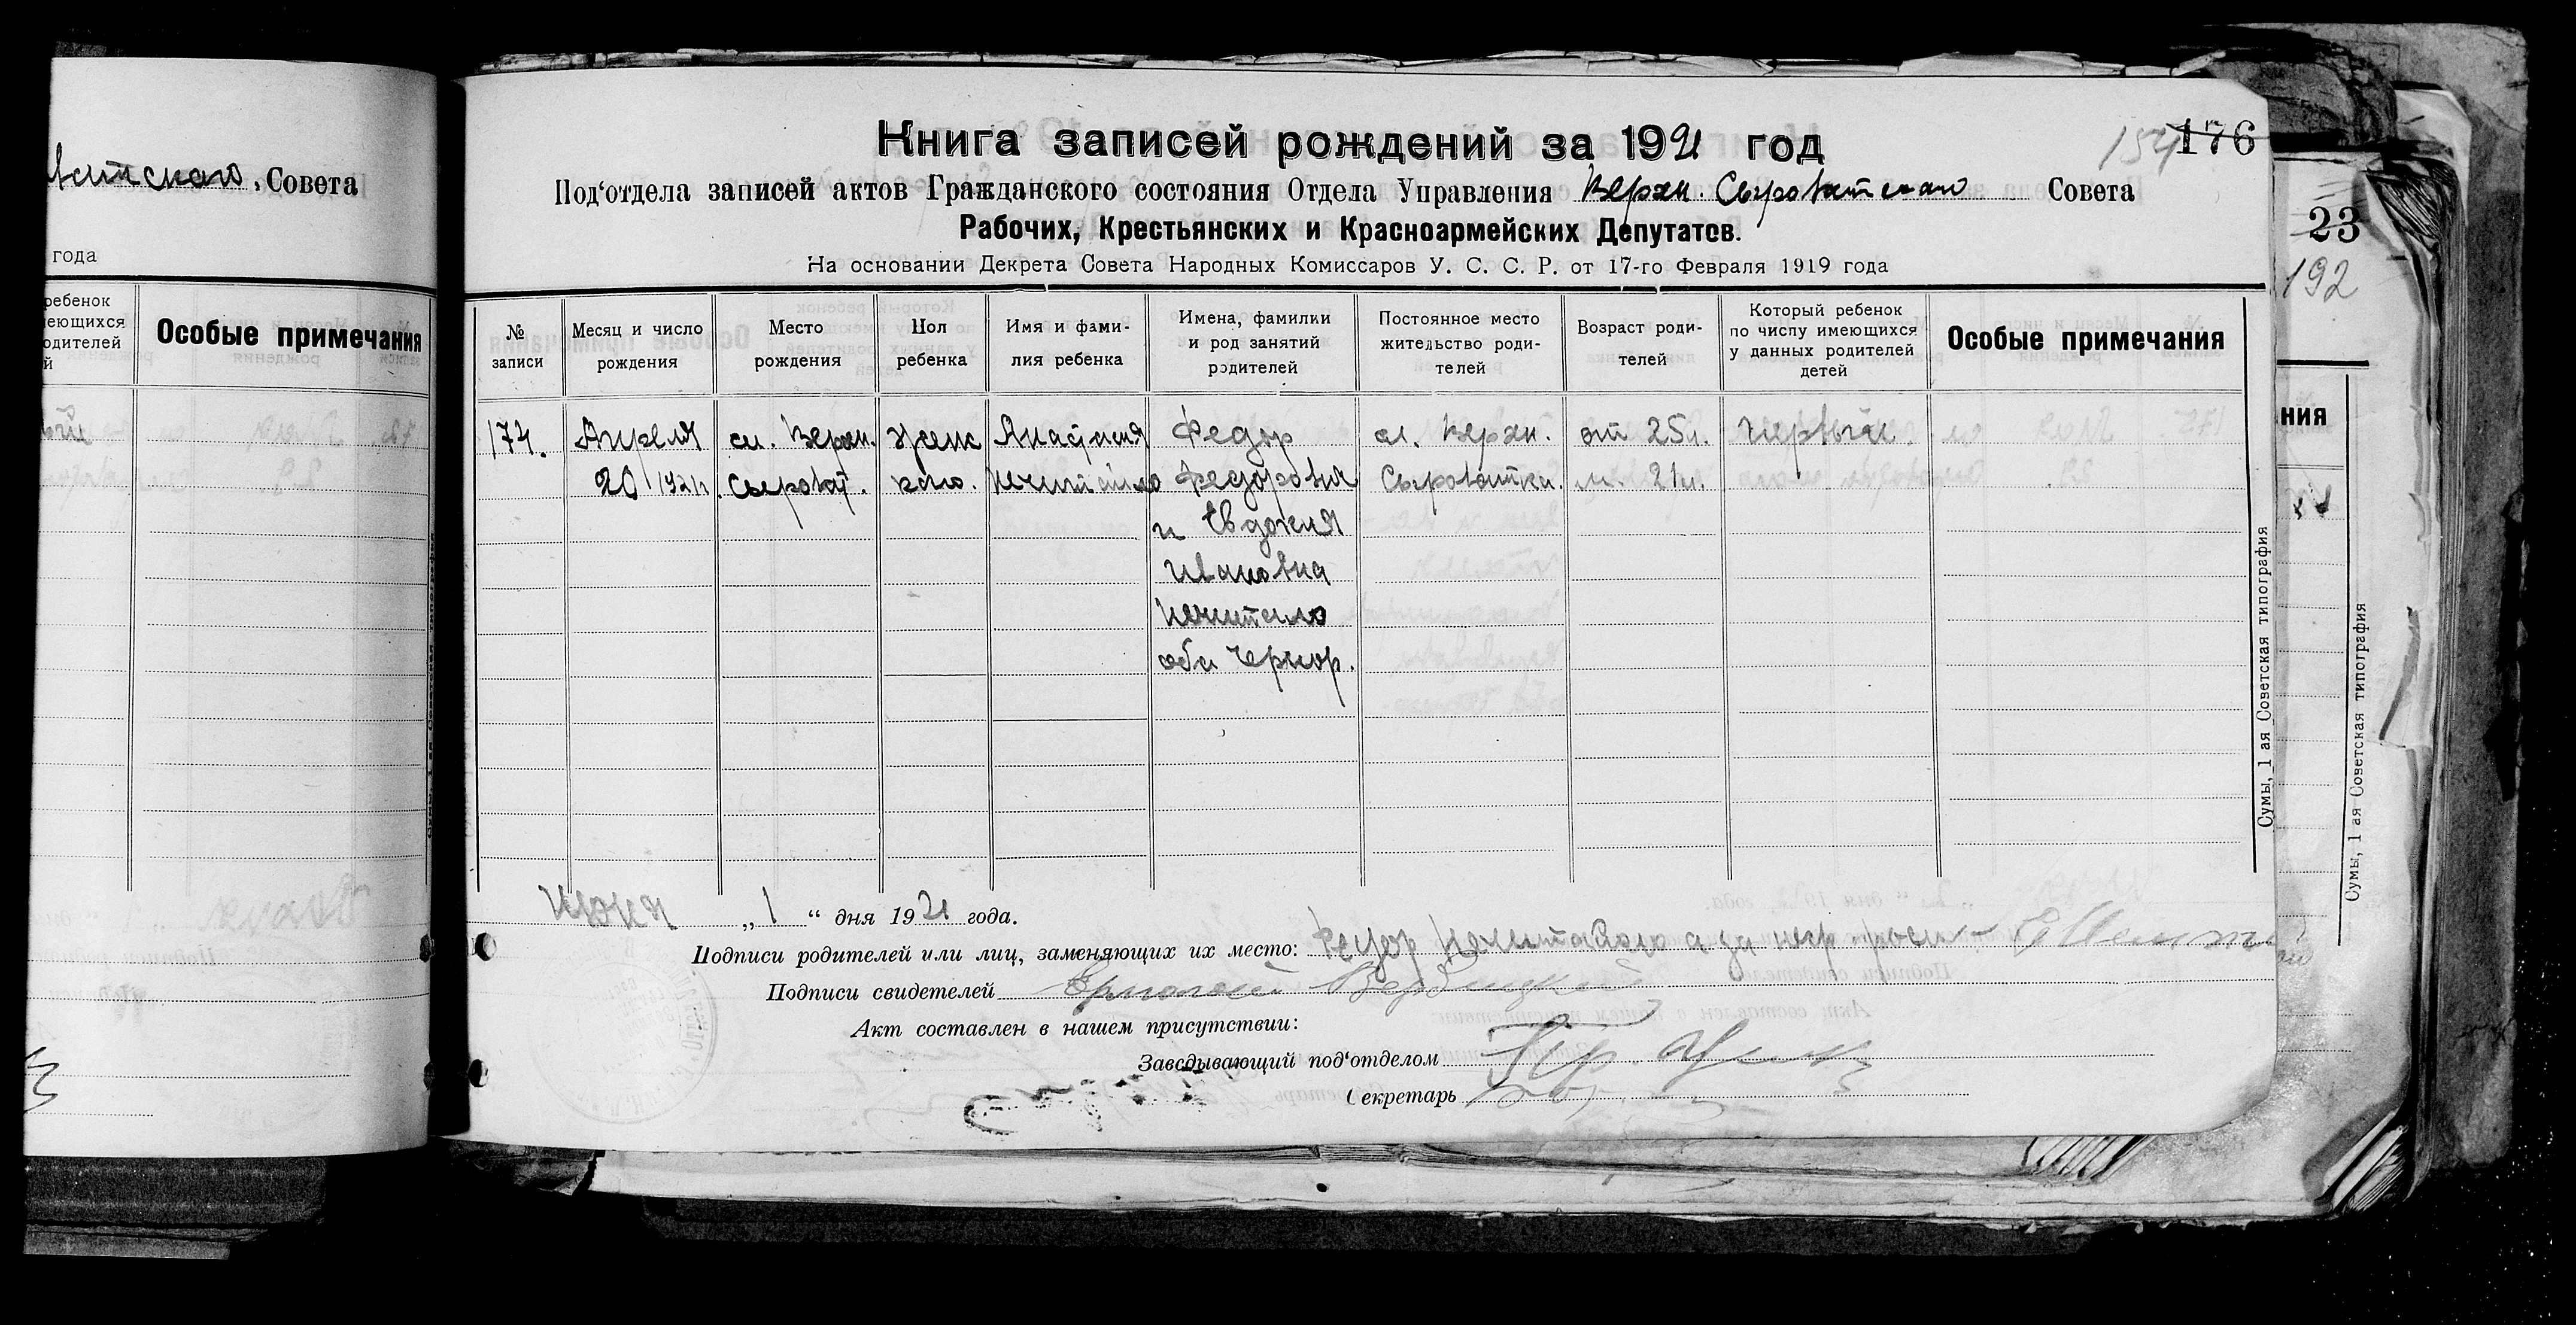 витского Совета
года
ребенок
имеющихся
родителей
й
Особые примечания
Книга записей рождений за 1921 год
154 176
Под‘отдела записей актов Гражданского состояния Отдела Управления Верхн. Сыроватского Совета
Рабочих, Крестьянских и Красноармейских Депутатов.
На основании Декрета Совета Народных Комиссаров У. С. С. Р. от 17-го Февраля 1919 года
№ записи
Месяц и число рождения
Место рождения
Пол ребенка
Имя и фами-
лия ребенка
Имена, фамилки
и род занятий
родителей
Постоянное место
жительство роди-
телей
Возраст роди-
телей
Который ребенок
по числу имеющихся
у данных родителей
детей
Особые примечания
174. Апреля сл. Верхн. женс Анастасия Федор сл. Верхн. от 25 л. первый
20 1921 г. Сыроват. кого. Нечитайло Федорович Сыроватка. м. 21 л.
и Евдокия
Ивановна
Нечитайло
оба
Июня „ 1 “ дня 1921 года.
Подписи родителей или лиц, заменяющих их место: Федор Нечитайло а за
Подписи свидетелей Вербицкий
Акт составлен в нашем присутствии:
Заведывающий под‘отделом
Секретарь
Сумы, 1 ая Советская типография
23
192
ния
Сумы, 1 ая Советская типография